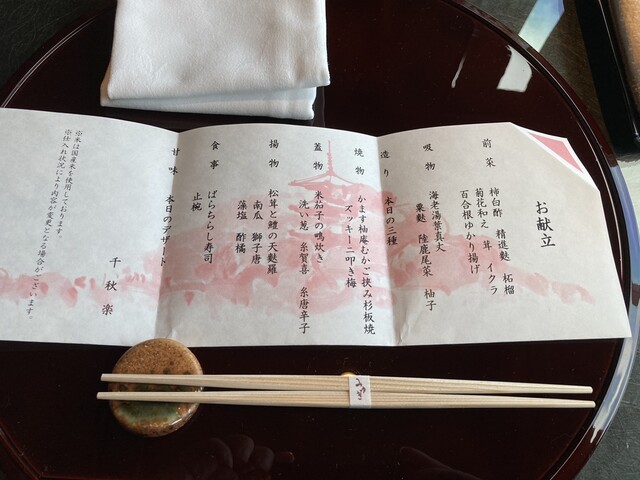 お献立
前菜
柿白酢 精進麩 柘榴
菊花和え 茸 イクラ
百合根ゆかり揚げ
吸物
海老湯葉真丈
粟麩 陸鹿尾菜 柚子
造り
本日の三種
焼物
かます柚庵むかご挟み杉板焼
ズッキーニ叩き梅
蓋物
米茄子の鴫炊き
洗い葱 糸賀喜 糸唐辛子
揚物
松茸と鱧の天麩羅
南瓜 獅子唐
藻塩 酢橘
食事
ばらちらし寿司
止椀
甘味
本日のデザート
千秋楽
※米は国産米を使用しております。
※仕入れ状況により内容が変更となる場合がございます。